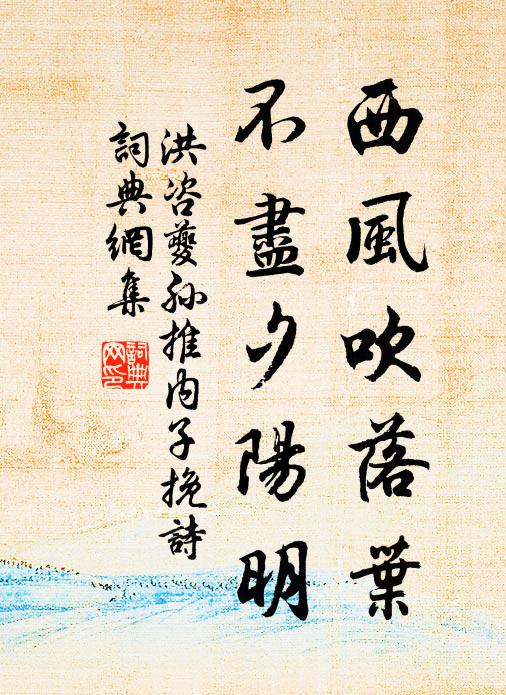 西風吹落葉
不盡夕陽明
洪咨夔孫推内子挽詩
詞典網集
詞典
网印